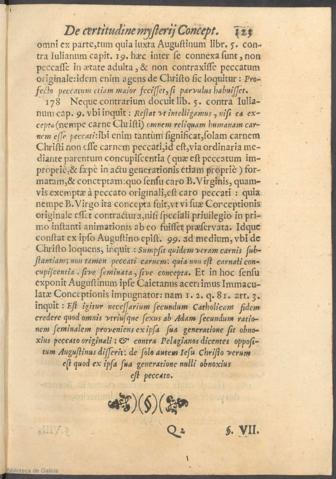 De certitudine mysterij Concept. 123
omni ex parte, tum quia iuxta Augustinum libr. 5. con-
tra Iulianum capit. 19. hæc inter se connexa sunt, non
peccasse in ætate adulta, & non contraxisse peccatum
originale: idem enim agens de Christo sic loquitur: Pro-
fecto peccatum etiam maior fecisset, si parvulus habuisset.
178 Neque contrarium docuit lib. 5. contra Iulia-
num cap. 9. vbi inquit: Restat vt intelligamus, nisi ea ex
cepta (nempe carne Christi) omnem reliquam humanam car-
nem esse peccati: ibi enim tantum significat, solam carnem
Christi non esse carnem peccati, id est, via ordinaria me-
diante parentum concupiscentia (quæ est peccatum im-
propriè, & sæpè in actu generationis etiam propriè) for-
matam, & conceptam: quo sensu caro B. Virginis, quam-
vis exempta à peccato originali, est caro peccati: quia
nempe B. Virgo ita concepta fuit, vt vi suæ Conceptionis
originale esset contractura, nisi speciali priuilegio in pri-
mo instanti animationis ab eo fuisset præservata. Idque
constat ex ipso Augustino epist. 99. ad medium, vbi de
Christo loquens, inquit: Sumpsit quidem veram carnis sub-
stantiam; non tamen peccati carnem: quia non est carnali con-
cupiscentia, sive seminata, sive concepta. Et in hoc sensu
exponit Augustinum ipse Caietanus acerrimus Immacu-
latæ Conceptionis impugnator: nam 1. 2. q. 81. art. 3.
inquit: Est igitur necessarium secundum Catholicam fidem
credere quod omnis vtriusque sexus ab Adam secundum ratio-
nem seminalem proveniens ex ipsa sua generatione sit obno-
xius peccato originali: & contra Pelagianos dicentes opposi-
tum Augustinus disserit: de solo autem Iesu Christo verum
est quod ex ipsa sua generatione nulli obnoxius
est peccato.
(§)
Q 2 §. VII.
Biblioteca de Galicia